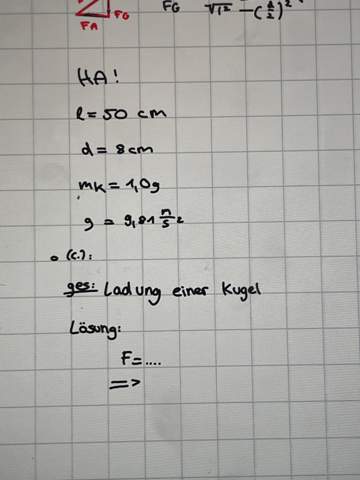 FA FG FG √l² - (d/2)²
HA!
l = 50 cm
d = 8 cm
mK = 1,0g
g = 9,81 m/s²
(c.):
ges: Ladung einer Kugel
Lösung:
F = ....
=>